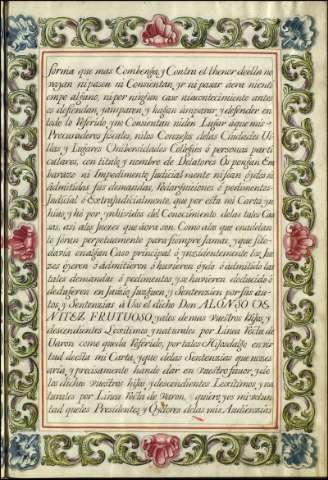 forma que mas Combenga, y Contra el thenor de ella no
vayan ni pasen ni Consientan, yr ni pasar aora ni en ti
empo alguno, ni por ningun caso ni acontecimiento antes
os defiendan, y amparen, y hagan amparar y defender en
todo lo Referido, y no Consientan ni den Lugar a que mis
Procuradores fiscales, ni los Conzejos de las Ciudades Vi
llas y Lugares Unibersidades Collegios ó personas parti
culares, con titulo y nombre de Delatores Os pongan Em
barazo ni Impedimento Judicial mente ni sean óydos ni
admitidos sus demandas, Redarguiciones ó pedimentos
Judicial ó Extrajudicialmente, que por esta mi Carta yn
hiuo, y hé por ynhividos del Conocimiento de las tales Cau
sas, asi a los Jueces que aora son Como a los que en adelan
te fueren perpetuamente para siempre Jamas, y que si to
davia en algun Caso principal ó yncidentemente los Jue
zes óyeren ó admitieren ó huvieren óydo ó admitido las
tales demandas ó pedimentos, y se huvieren declarado ó
declararen en Juizio Juzguen, y Sentenzien por sus áu
tos, y Sentenzias á Vos el dicho Don ALONSO OS
NITEZ FRUTUOSO, y a los de mas Vuestros hijos, y
descendientes Lexitimos y naturales por Linea Recta de
Varon como queda Referido, por tales Hijosdalgo en vir
tud de esta mi Carta, y que de las Sentenzias que nezes
aria, y precisamente han de dar en vuestro favor, y de
los dichos vuestros hijos, y descendientes Lexitimos, y na
turales por Linea Recta de Varon, quiero, y es mi volun
tad que los Presidentes, y Oydores de las mis Audienzias